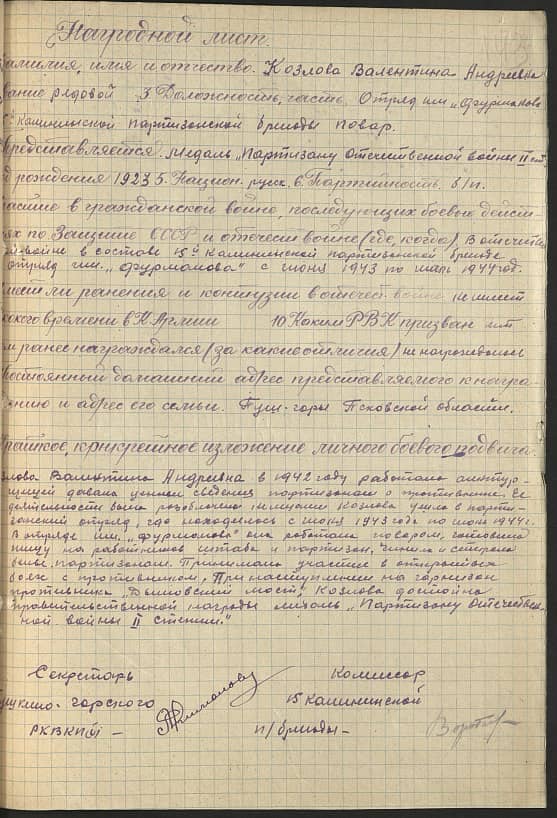 Наградной лист.
амилия, имя и отчество. Козлова Валентина Андреевна
вание рядовой 3 Должность, часть. Отряд им „Фурманова
Калининской партизанской бригады повар.
Представляется. Медаль „Партизану Отечественной войны II ст
д рождения 1923 5. Национ. русск. 6. Партийность. б/п.
астие в гражданской войне, последующих боевых дейст-
иях по Защите СССР и отечест войне (где, когда). В отечестве
ной войне в составе 15ой Калининской партизанской бригаде
отряд им. „Фурманова" с июня 1943 по март 1944 год.
меет ли ранения и контузии в отечест. войне не имеет
какого времени в К Армии 10 Каким РВК призван нет
м ранее награждался (за какие отличия) не награждалась
Постоянный домашний адрес представляемого к награ-
дению и адрес его семьи. Пуш-горы Псковской области.
Краткое, конкретное изложение личного боевого подвига.
злова Валентина Андреевна в 1942 году работала
давала ценные сведения партизанам о противнике. Ее
деятельность была немцами Козлова ушла в парти-
занский отряд, где находилась с июня 1943 года по июнь 1944 г.
В отряде им. „Фурманова" она работала поваром, готовила
пищу на работников штаба и партизан, чинила и стирала
белье партизанам. Принимала участие в открытых
боях с противником, При наступлении на гарнизон
противника „ мост" Козлова достойна
правительственной награды медаль „Партизану Отечествен-
ной войны II степени."
Секретарь Комиссар
горского 15 Калининской
РКВКП(б) – п/бригады –